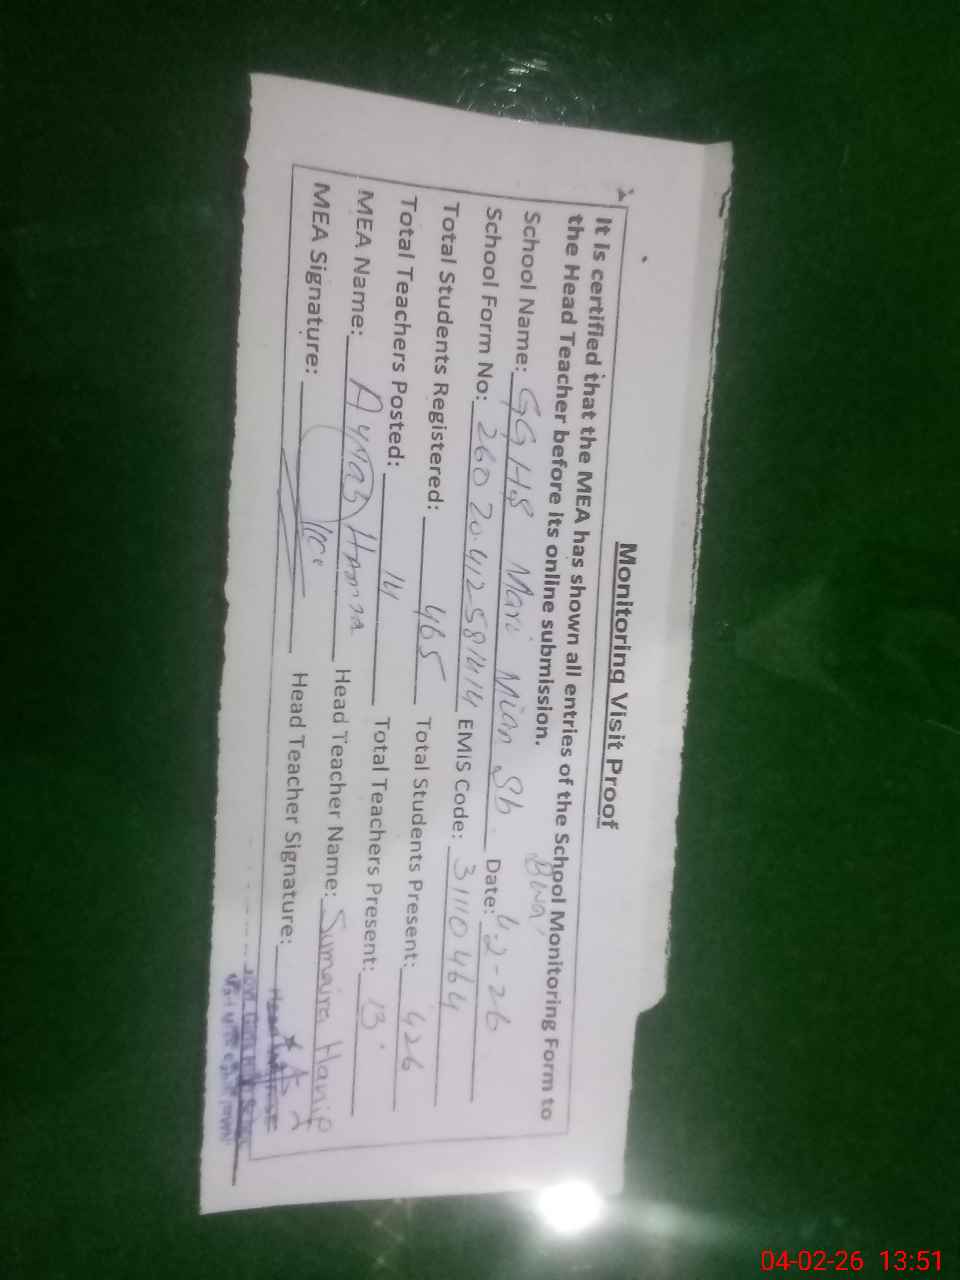 Monitoring Visit Proof
It is certified that the MEA has shown all entries of the School Monitoring Form to
the Head Teacher before its online submission.
School Name: GGHS Mari Mian Sb. Date: 4-2-26
School Form No: 26020412581414 EMIS Code: 31110464
Total Students Registered: 465 Total Students Present: 426
Total Teachers Posted: 14 Total Teachers Present: 13
MEA Name: Hamza Head Teacher Name: Sumaira Hanif
MEA Signature: Head Teacher Signature:
04-02-26 13:51